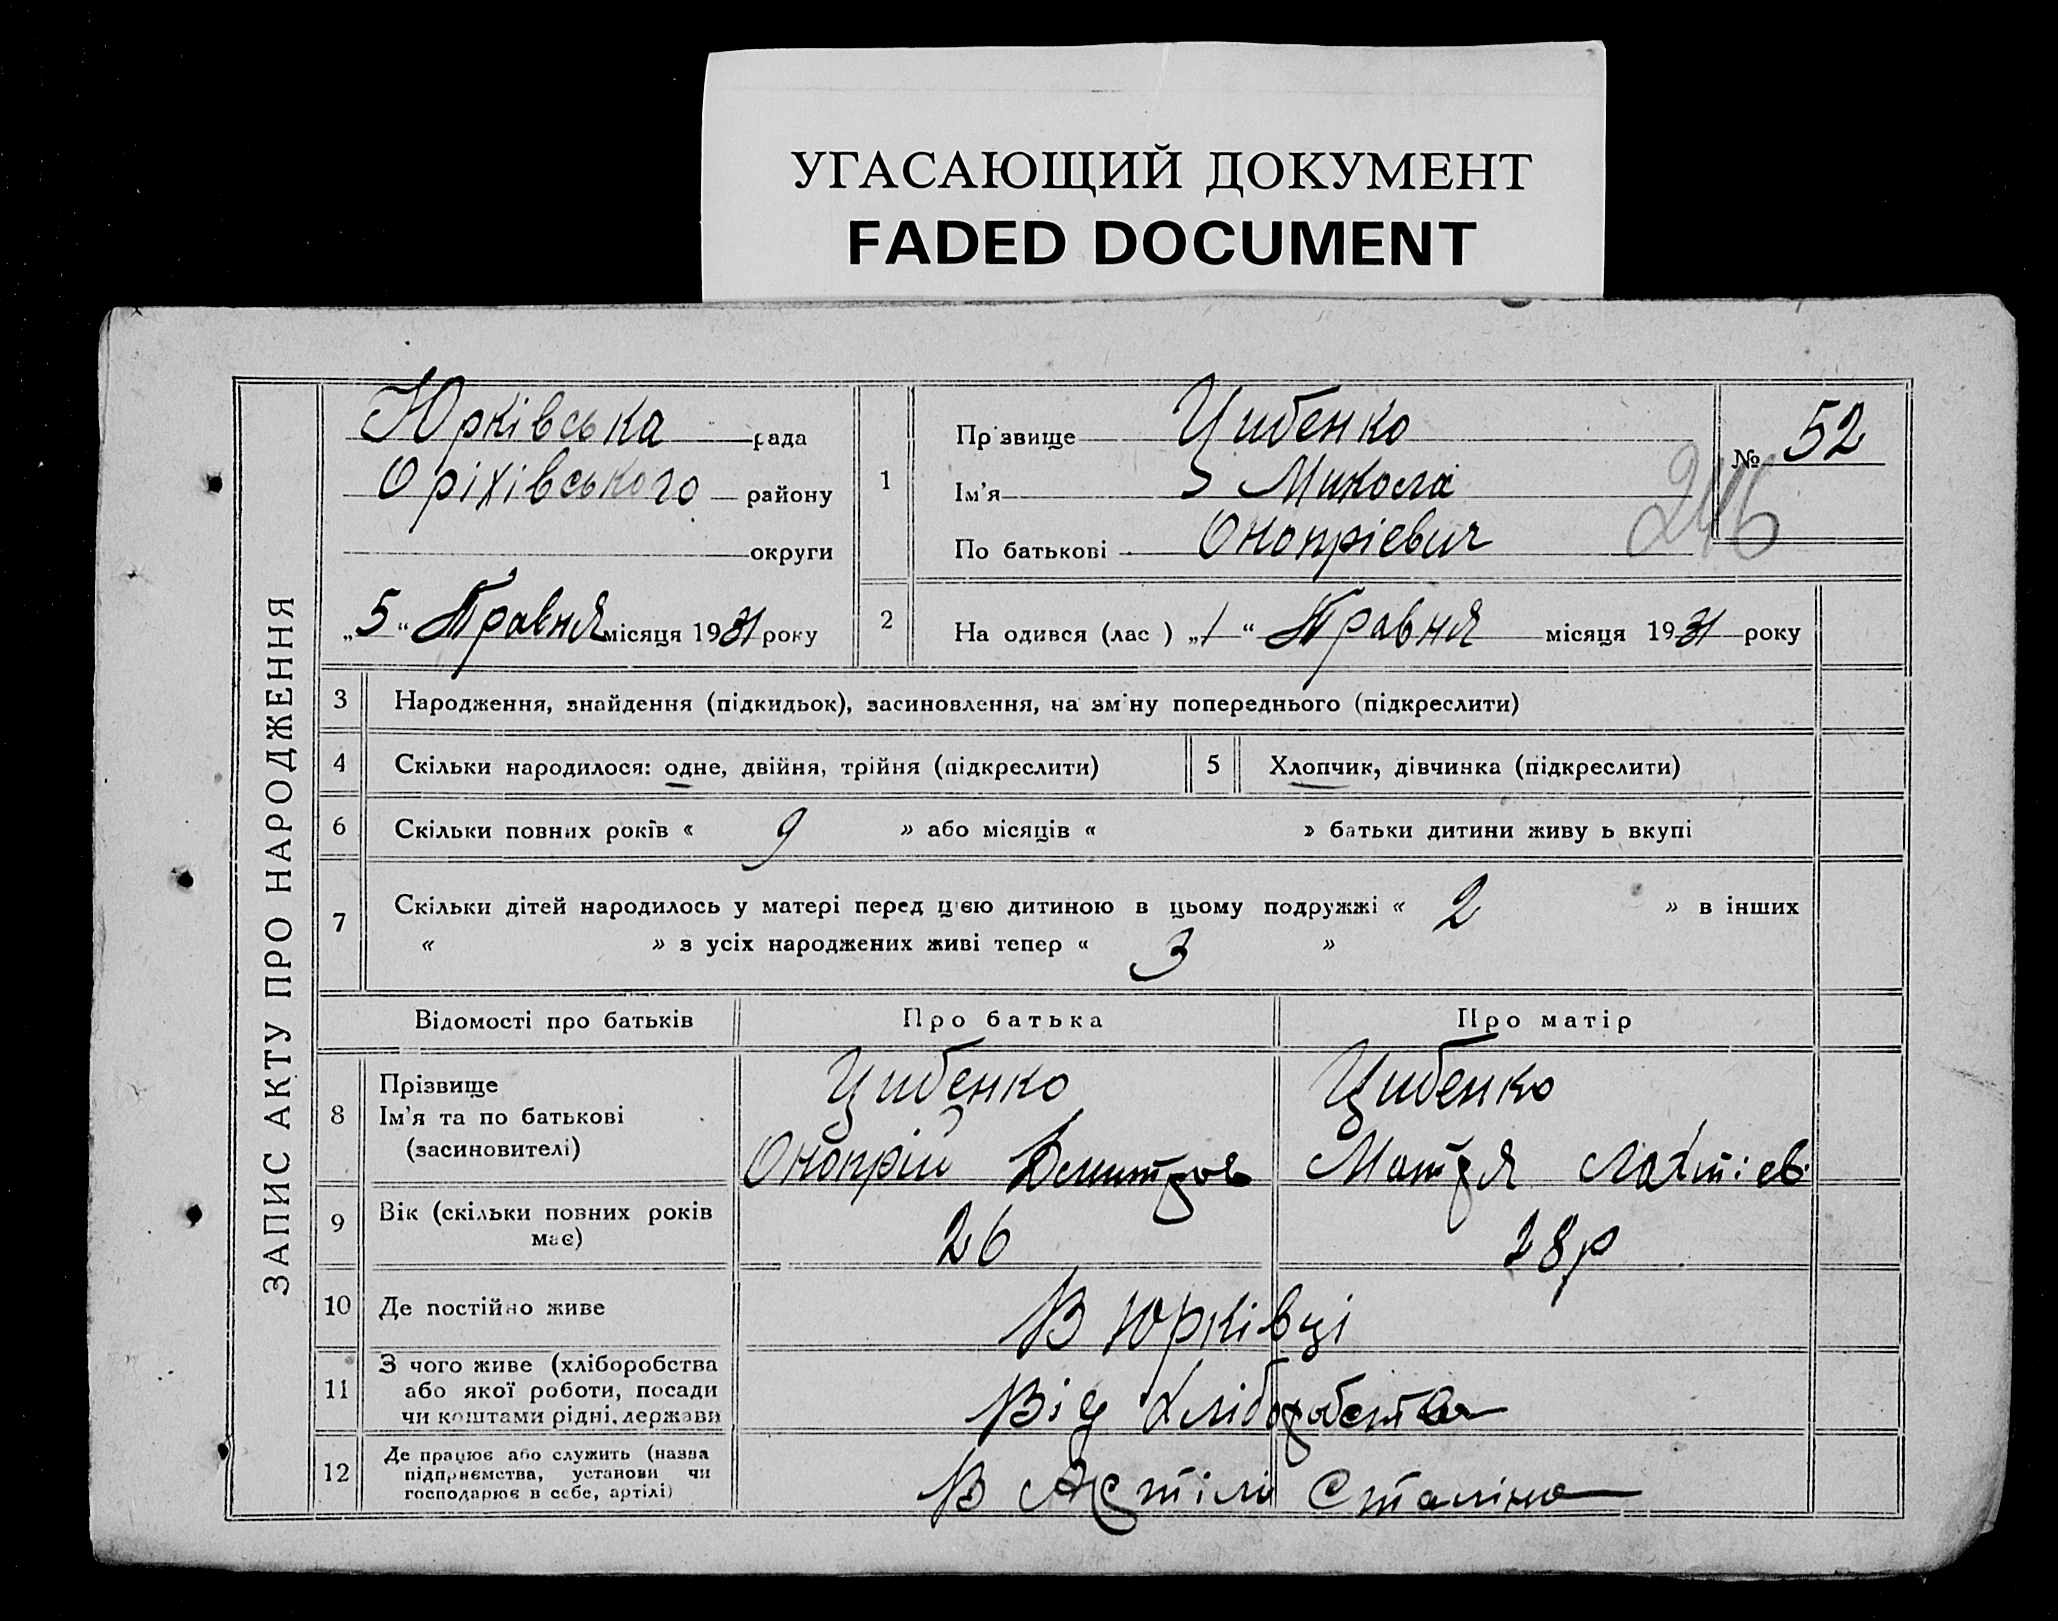 УГАСАЮЩИЙ ДОКУМЕНТ
FADED DOCUMENT
ЗАПИС АКТУ ПРО НАРОДЖЕННЯ
Юрківська рада
Оріхівського району
округи
„5“ Травня місяця 1931 року
1
Пр звище Цибенко
Ім'я Микола
По батькові Онопрієвич
№ 52
246
2
На одився (лас ) „1“ Травня місяця 1931 року
3 Народження, знайдення (підкидьок), засиновлення, на зм ну попереднього (підкреслити)
4 Скільки народилося: одне, двійня, трійня (підкреслити)
5 Хлопчик, дівчинка (підкреслити)
6 Скільки повних років « 9 » або місяців « » батьки дитини живу ь вкупі
7 Скільки дітей народилось у матері перед цією дитиною в цьому подружжі « 2 » в інших
« » з усіх народжених живі тепер « 3 »
Відомості про батьків Про батька Про матір
8 Прізвище
Ім'я та по батькові
(засиновителі)
Цибенко
Онопрій Дмитров
Цибенко
Мотря
9 Вік (скільки повних років
має)
26 28р
10 Де постійно живе В Юрківці
11 З чого живе (хліборобства
або якої роботи, посади
чи коштами рідні, держави
Від хліборобства
12 Де працює або служить (назва
підприємства, установи чи
господарює в себе, артілі)
В Артілі Сталіна